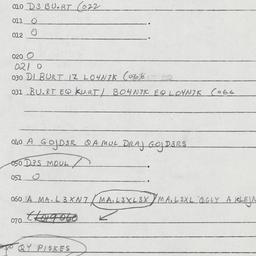 010 D3 BU.RT (022
011 0
012 0
020 0
021 0
030 D1 BURT 1Z LO4N7K (
031 BU.RT EQ KURT/ BO4N7K EQ LO4N7K (
040 A GOJD3R QAMUL DRAJ GOJD3RS
050 D3S MOUL /
051 0
060 A MA.L3XN7 (MA.L3XL3X) MA.L3XL OGLY A
070
QY PISKES